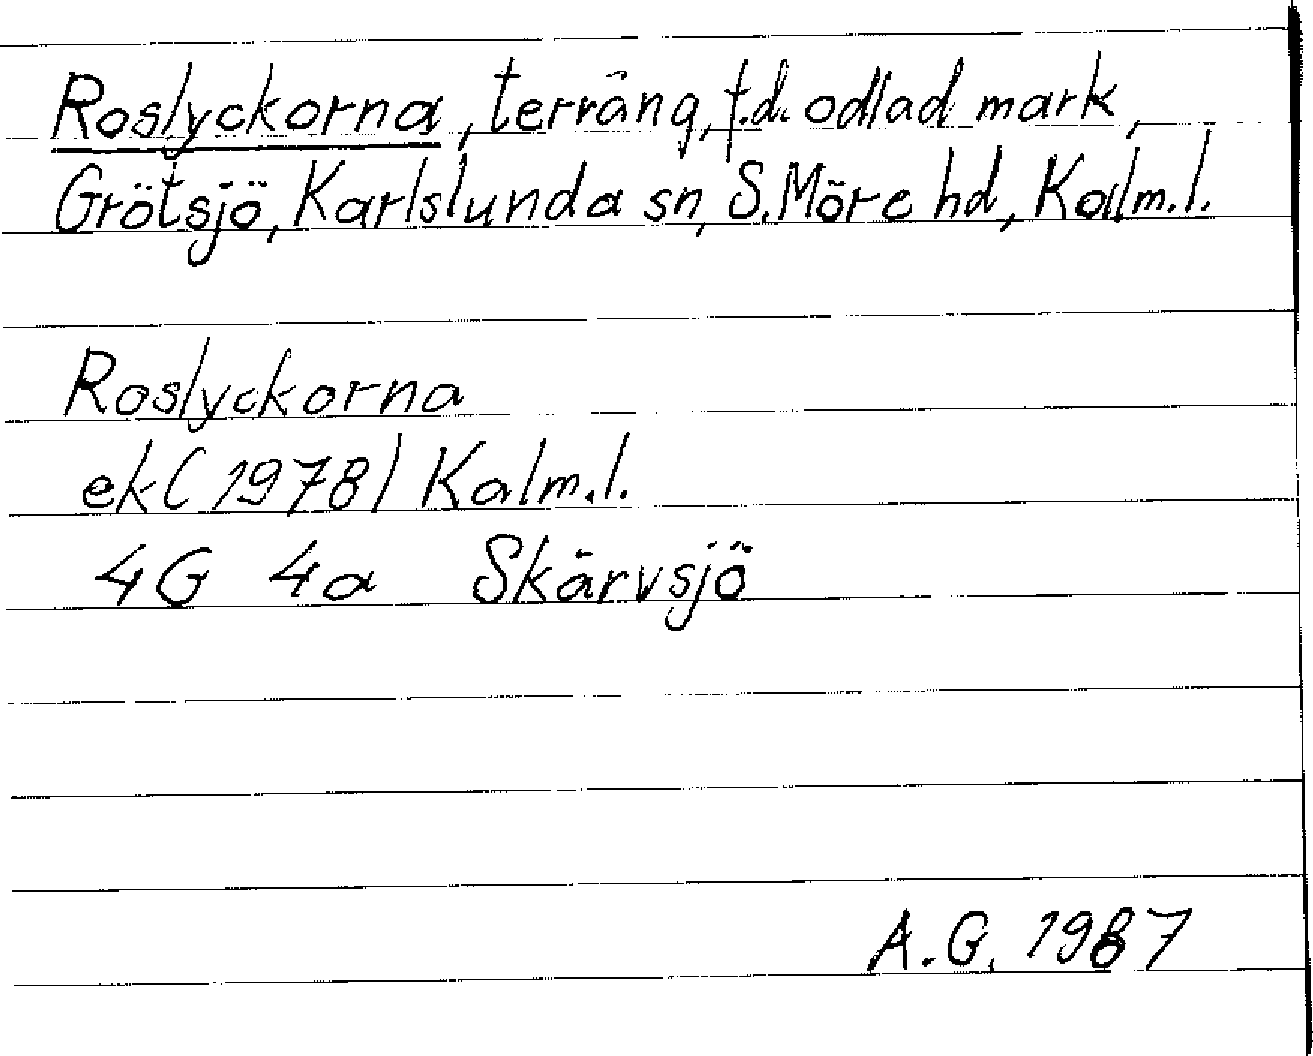 Roslyckorna, terräng, f.d. odlad mark,
Grötsjö, Karlslunda sn, S. Möre hd, Kalm.l.
Roslyckorna
ek (1978) Kalm.l.
4G 4a Skärvsjö
A.G. 1987